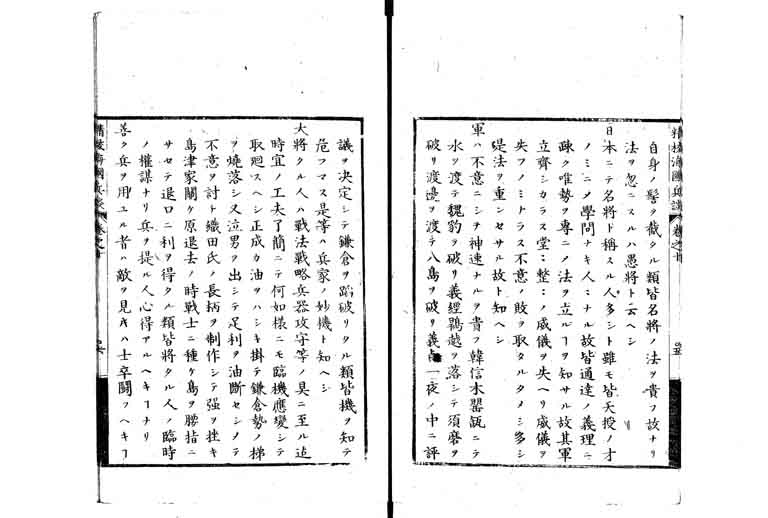 精校海國兵談 卷之十
自身ノ髻ヲ截タル類皆名將ノ法ヲ貴フ故ナリ
法ヲ忽ニスルハ愚將ト云ヘシ
日本ニテ名將ト稱スル人多シト雖モ皆天授ノ才
ノミニメ學問ナキ人ミナル故皆通達ノ義理ニ
疎ク唯勢ヲ專ニノ法ヲ立ルヿヲ知サル故其軍
立齊シカラス堂〻整〻ノ威儀ヲ失ヘリ威儀ヲ
失フノミナラス不意ノ敗ヲ取タルタメシ多シ
是法ヲ重ンセサル故ト知ヘシ
軍ハ不意ニシテ神速ナルヲ貴フ韓信木罌缻ニテ
水ヲ渡テ魏豹ヲ破リ義經鵯越ヲ落シテ須磨ヲ
破リ渡邊ヲ渡テ八島ヲ破リ義貞一夜ノ中ニ評
議ヲ決定シテ鎌倉ヲ蹈破リタル類皆機ヲ知テ
危フマス是等ハ兵家ノ妙機ト知ヘシ
大將タル人ハ戰法戰略兵器攻守等ノ具ニ至ル迄
時宜ノ工夫了簡ニテ何如樣ニモ臨機應變シテ
取廻スヘシ正成カ油ヲハシキ掛テ鎌倉勢ノ梯
ヲ燒落シ又泣男ヲ出シテ足利ヲ油斷セシメテ
不意ヲ討ト織田氏ノ長柄ヲ制作シテ强ヲ挫キ
島津家關ケ原退去ノ時戰士ニ種ケ島ヲ腰指ニ
サセテ退口ニ利ヲ得タル類皆將タル人ノ臨時
ノ權謀ナリ兵ヲ提ル人心得アルヘキヿナリ
善ク兵ヲ用ユル者ハ敵ヲ見テハ士卒鬪フヘキヿ
精校海國兵談 卷之十